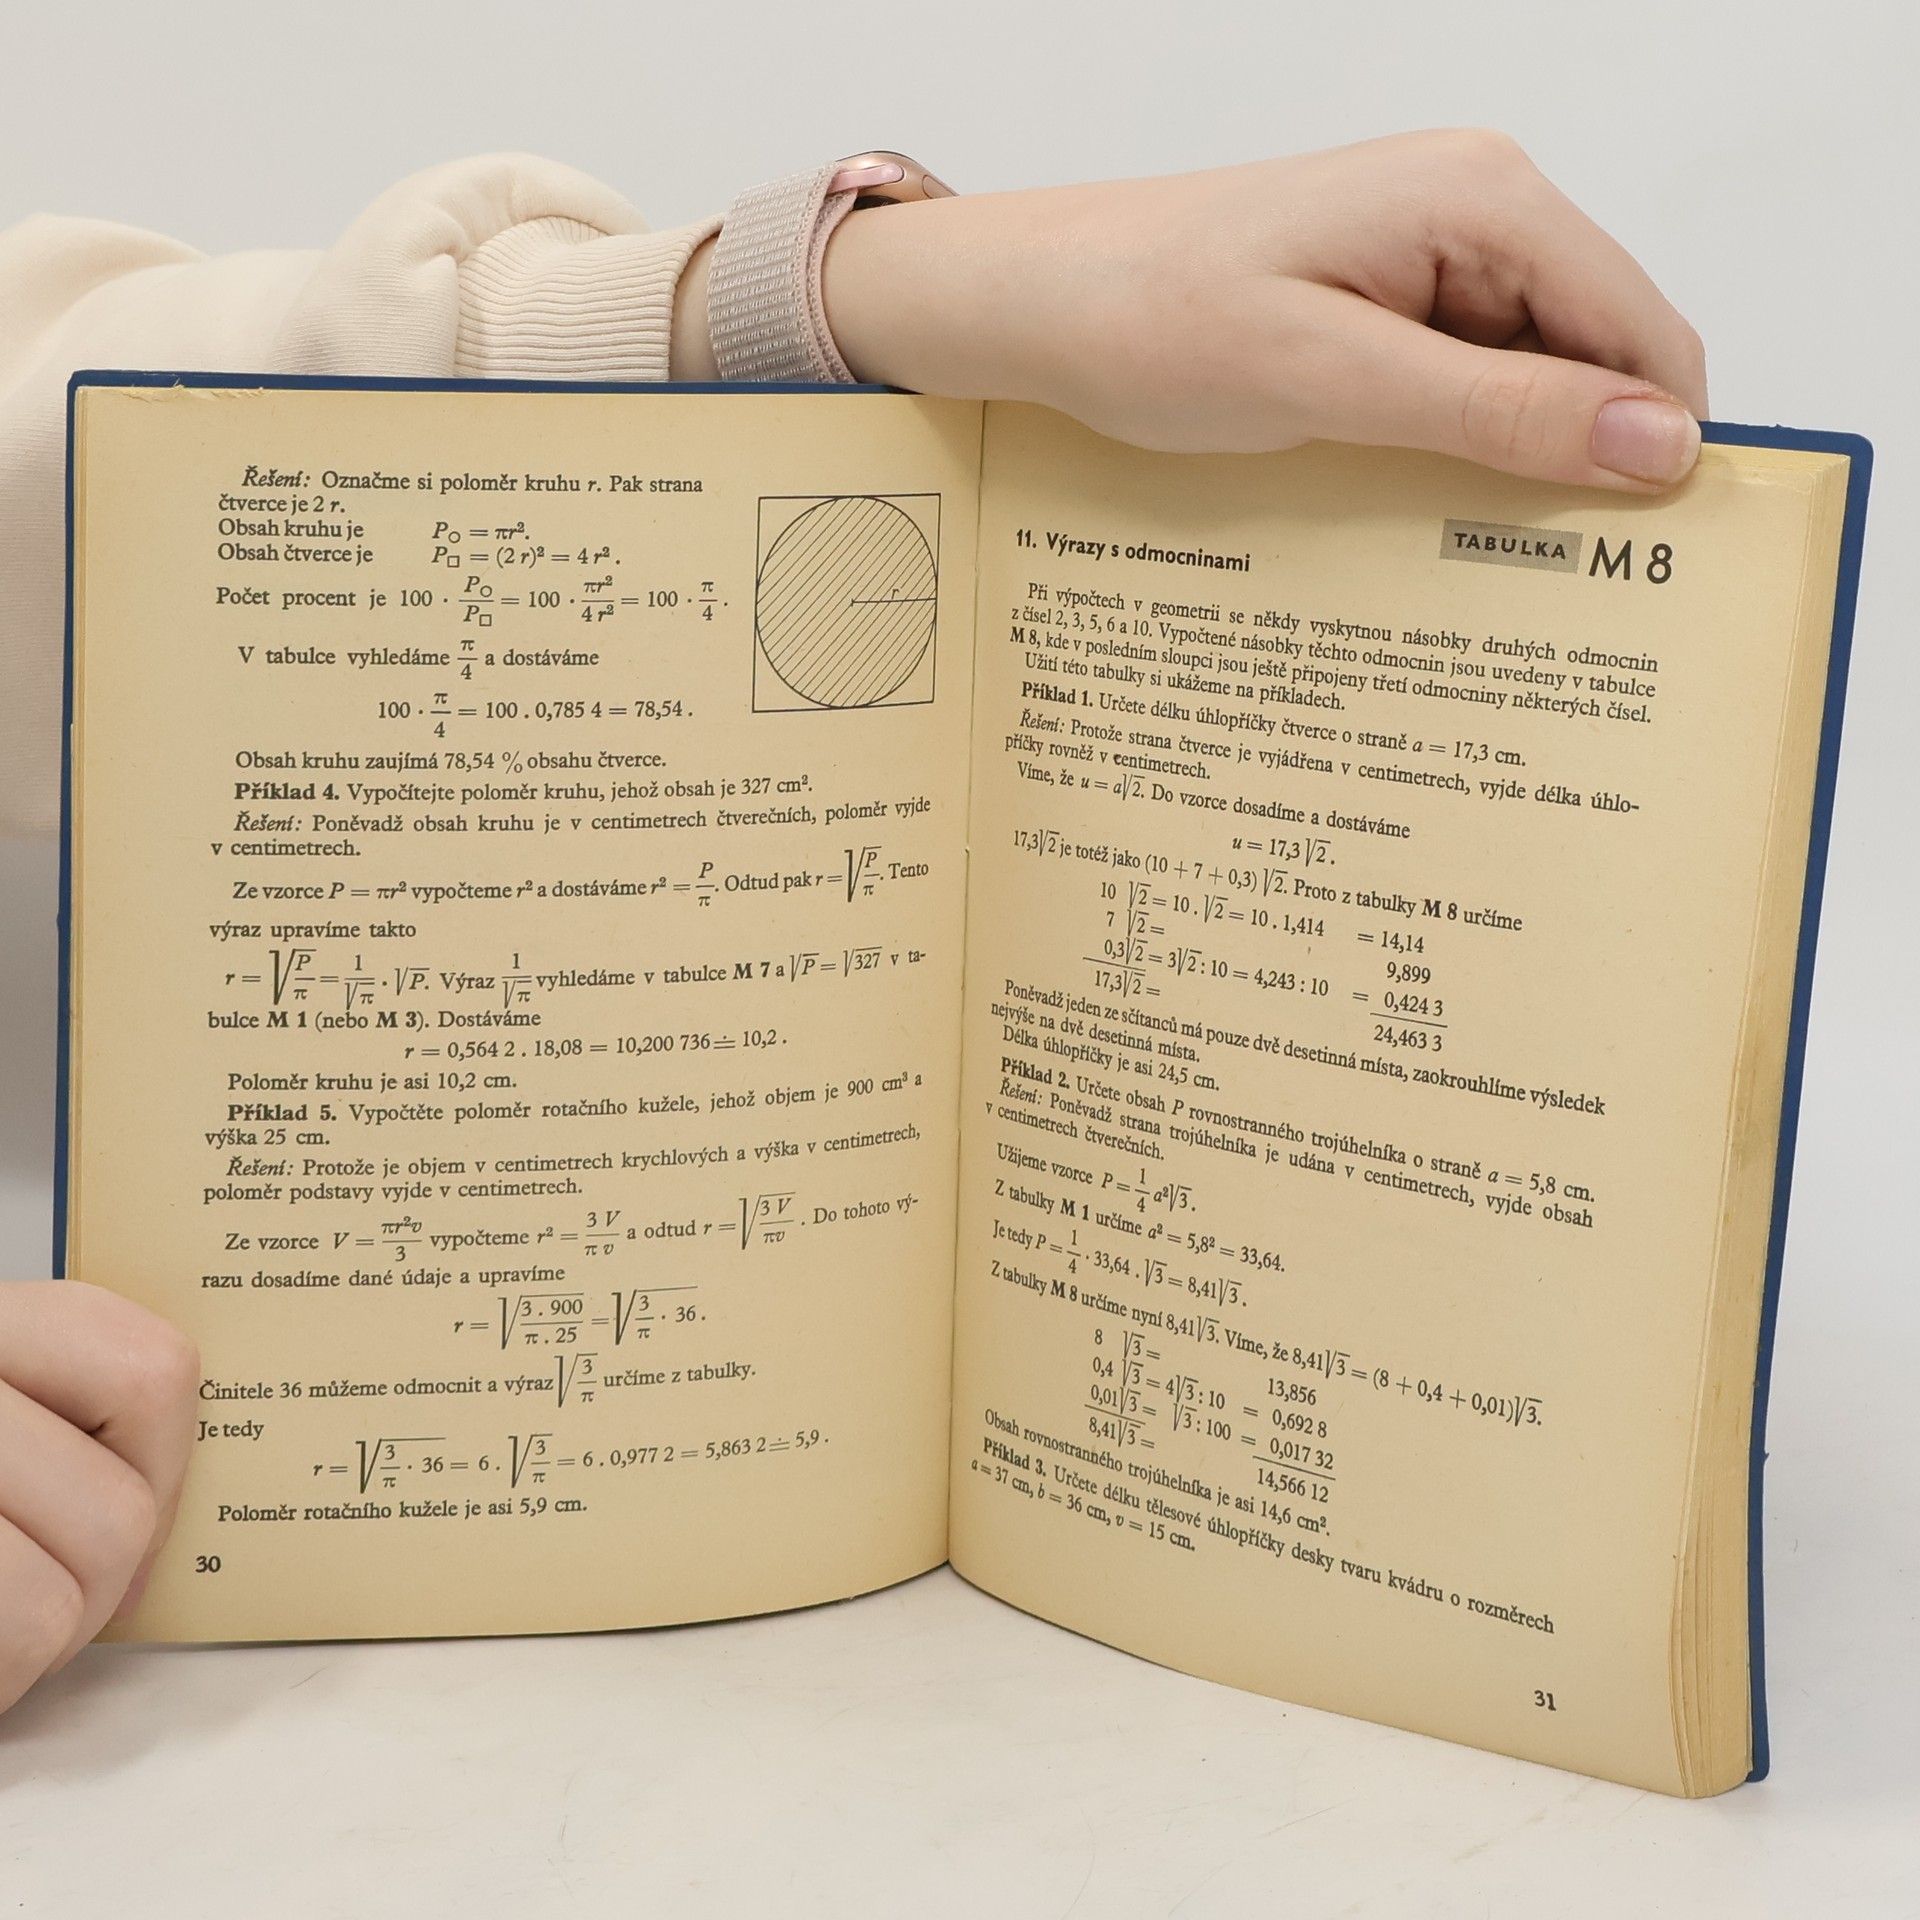 Řešení: Označme si poloměr kruhu r. Pak strana
čtverce je 2 r.
Obsah kruhu je P○ = πr².
Obsah čtverce je P□ = (2 r)² = 4 r² .
Počet procent je 100 · P○/P□ = 100 · πr²/4 r² = 100 · π/4 .
r
V tabulce vyhledáme π/4 a dostáváme
100 · π/4 = 100 . 0,785 4 = 78,54 .
Obsah kruhu zaujímá 78,54 % obsahu čtverce.
Příklad 4. Vypočítejte poloměr kruhu, jehož obsah je 327 cm².
Řešení: Poněvadž obsah kruhu je v centimetrech čtverečních, poloměr vyjde
v centimetrech.
Ze vzorce P = πr² vypočteme r² a dostáváme r² = P/π. Odtud pak r = √(P/π). Tento
výraz upravíme takto
r = √(P/π) = 1/√π · √P. Výraz 1/√π vyhledáme v tabulce M 7 a √P = √327 v ta-
bulce M 1 (nebo M 3). Dostáváme
r = 0,564 2 . 18,08 = 10,200 736 ≐ 10,2 .
Poloměr kruhu je asi 10,2 cm.
Příklad 5. Vypočtěte poloměr rotačního kužele, jehož objem je 900 cm³ a
výška 25 cm.
Řešení: Protože je objem v centimetrech krychlových a výška v centimetrech,
poloměr podstavy vyjde v centimetrech.
Ze vzorce V = πr²v/3 vypočteme r² = 3 V/π v a odtud r = √(3 V/πv) . Do tohoto vý-
razu dosadíme dané údaje a upravíme
r = √(3 . 900/π . 25) = √(3/π · 36) .
Činitele 36 můžeme odmocnit a výraz √(3/π) určíme z tabulky.
Je tedy
r = √(3/π · 36) = 6 . √(3/π) = 6 . 0,977 2 = 5,863 2 ≐ 5,9 .
Poloměr rotačního kužele je asi 5,9 cm.
30
TABULKA M 8
11. Výrazy s odmocninami
Při výpočtech v geometrii se někdy vyskytnou násobky druhých odmocnin
z čísel 2, 3, 5, 6 a 10. Vypočtené násobky těchto odmocnin jsou uvedeny v tabulce
M 8, kde v posledním sloupci jsou ještě připojeny třetí odmocniny některých čísel.
Užití této tabulky si ukážeme na příkladech.
Příklad 1. Určete délku úhlopříčky čtverce o straně a = 17,3 cm.
Řešení: Protože strana čtverce je vyjádřena v centimetrech, vyjde délka úhlo-
příčky rovněž v centimetrech.
Víme, že u = a√2. Do vzorce dosadíme a dostáváme
u = 17,3 √2 .
17,3√2 je totéž jako (10 + 7 + 0,3) √2. Proto z tabulky M 8 určíme
10 √2 = 10 . √2 = 10 . 1,414 = 14,14
7 √2 = 9,899
0,3√2 = 3√2 : 10 = 4,243 : 10 = 0,424 3
17,3√2 = 24,463 3
Poněvadž jeden ze sčítanců má pouze dvě desetinná místa, zaokrouhlíme výsledek
nejvýše na dvě desetinná místa.
Délka úhlopříčky je asi 24,5 cm.
Příklad 2. Určete obsah P rovnostranného trojúhelníka o straně a = 5,8 cm.
Řešení: Poněvadž strana trojúhelníka je udána v centimetrech, vyjde obsah
v centimetrech čtverečních.
Užijeme vzorce P = 1/4 a²√3.
Z tabulky M 1 určíme a² = 5,8² = 33,64.
Je tedy P = 1/4 · 33,64 . √3 = 8,41√3 .
Z tabulky M 8 určíme nyní 8,41√3. Víme, že 8,41√3 = (8 + 0,4 + 0,01)√3.
8 √3 = 13,856
0,4 √3 = 4√3 : 10 = 0,692 8
0,01√3 = √3 : 100 = 0,017 32
8,41√3 = 14,566 12
Obsah rovnostranného trojúhelníka je asi 14,6 cm².
Příklad 3. Určete délku tělesové úhlopříčky desky tvaru kvádru o rozměrech
a = 37 cm, b = 36 cm, v = 15 cm.
31